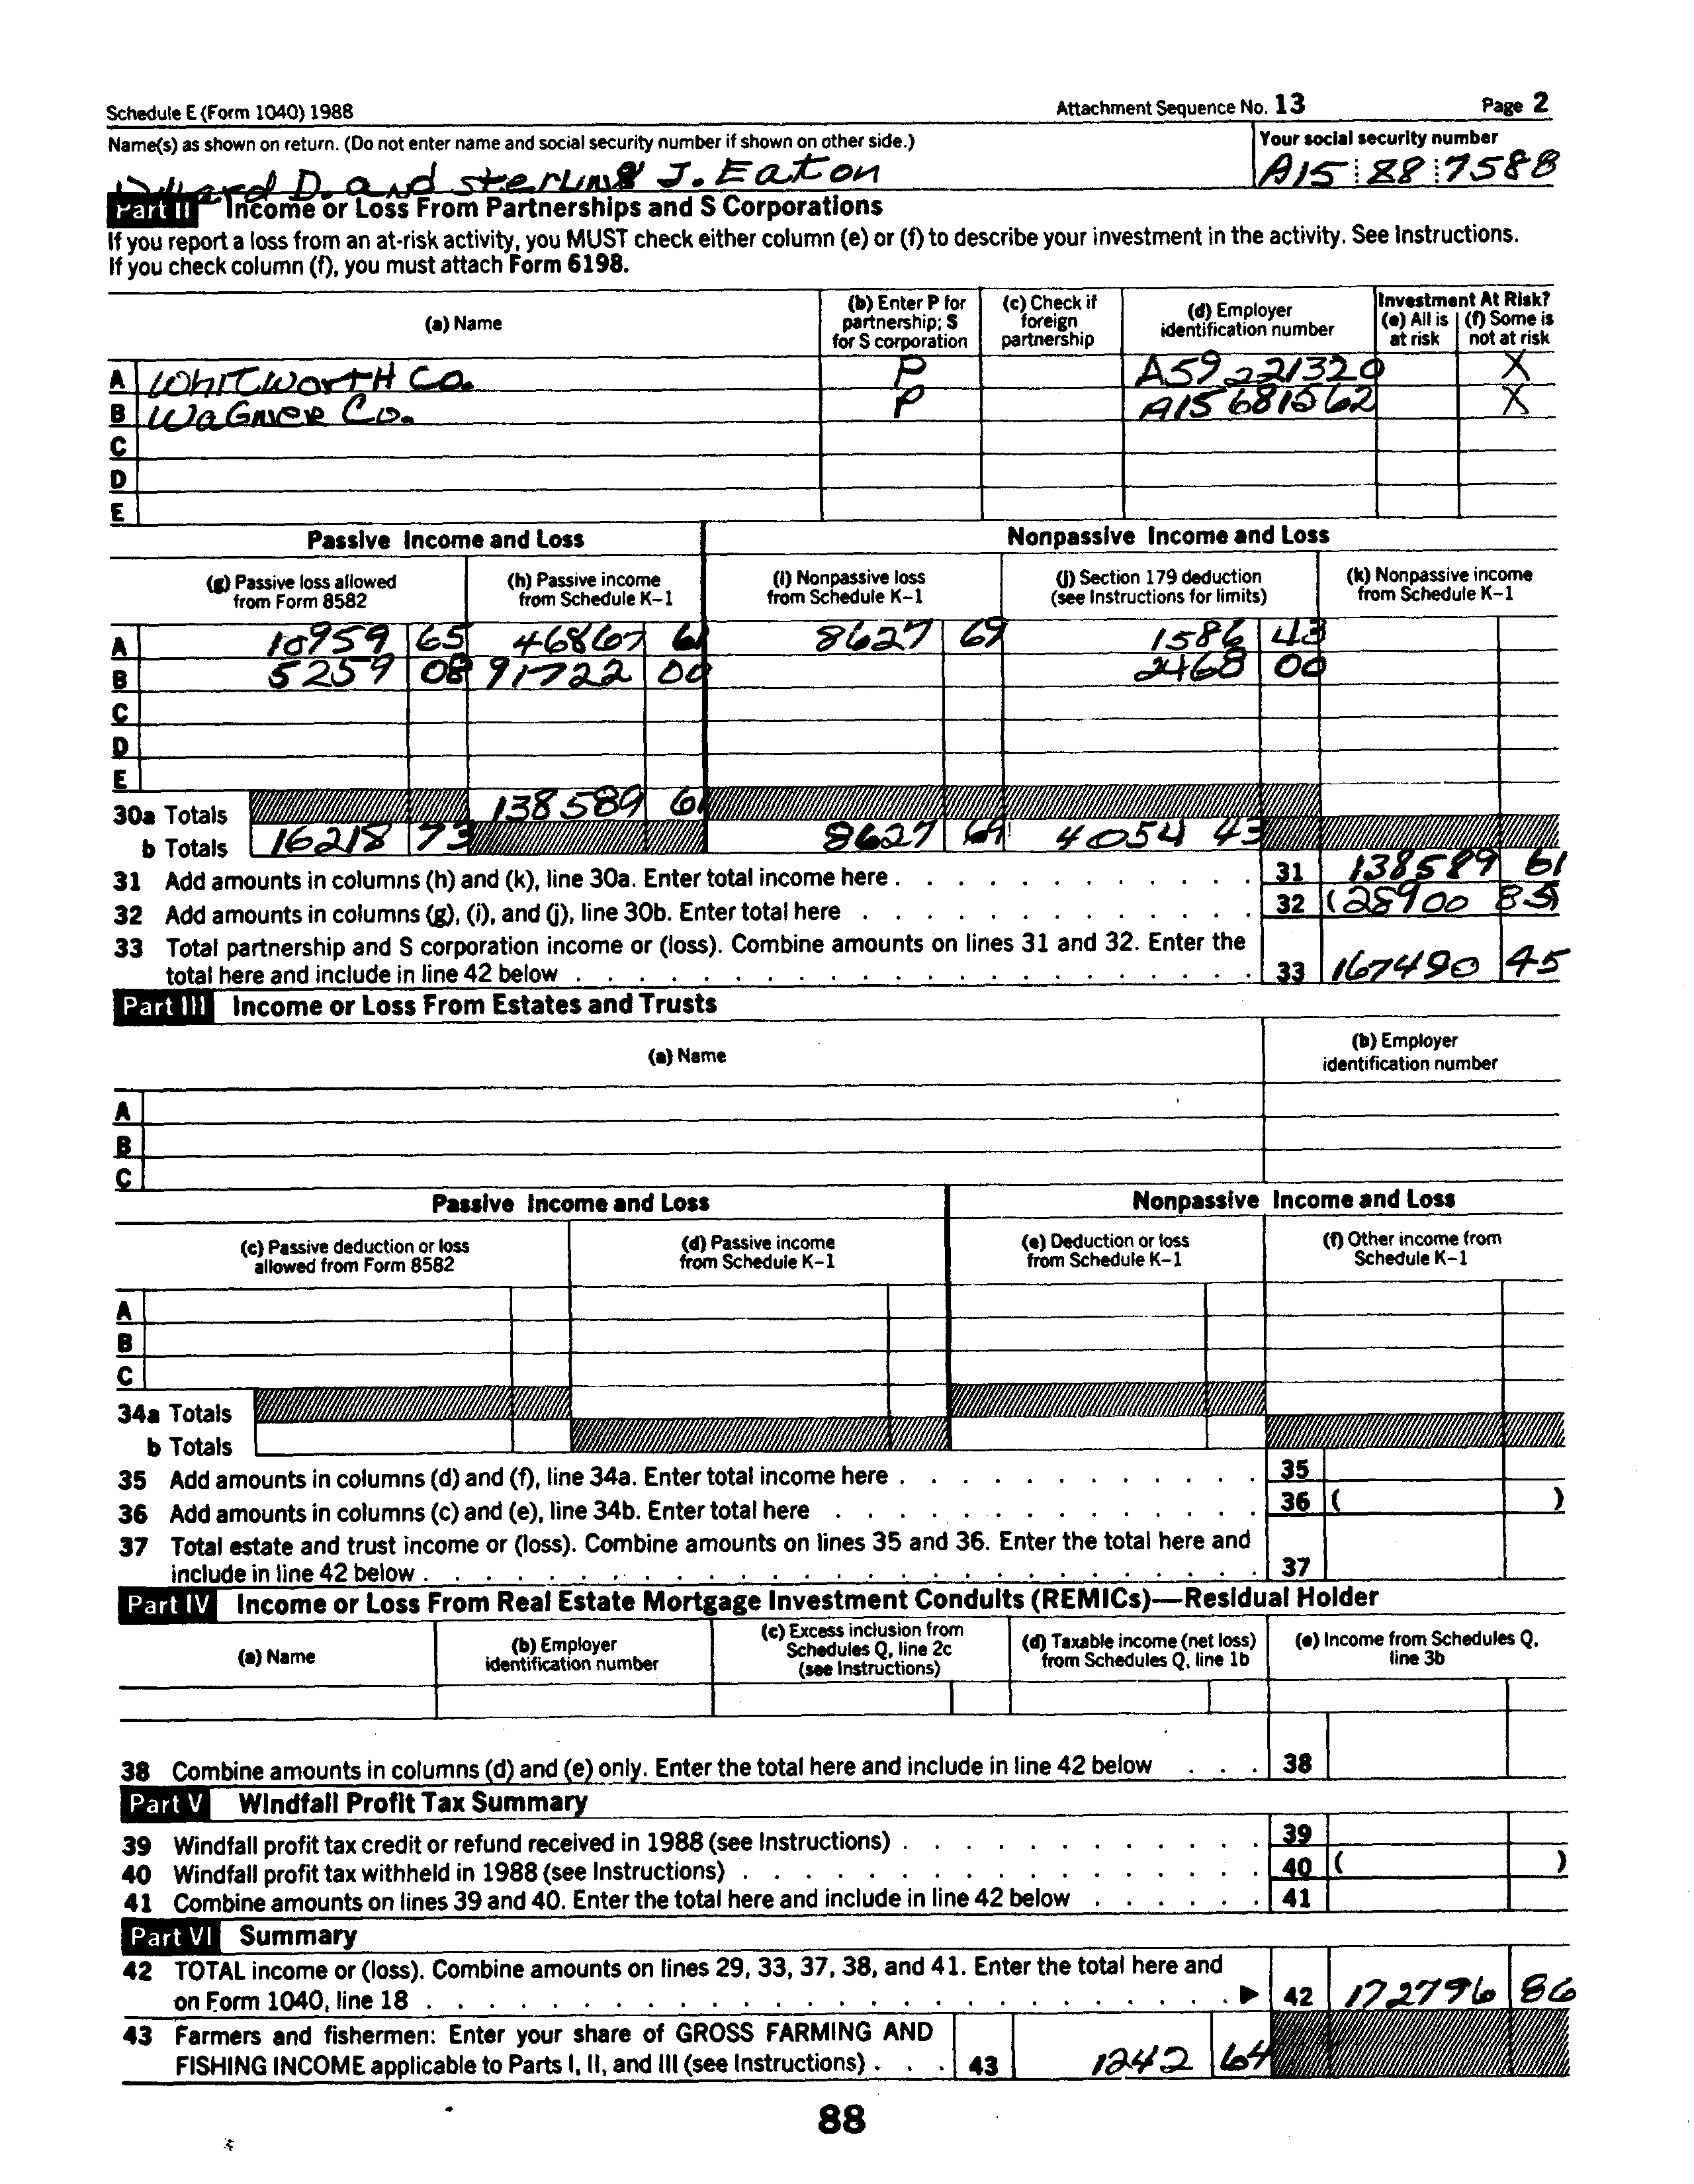 Schedule E (Form 1040) 1988 Attachment Sequence No. 13 Page 2
Name(s) as shown on return. (Do not enter name and social security number if shown on other side.) Your social security number
Willard D. and Sterling J. Eaton A15 88 7588
Part II Income or Loss From Partnerships and S Corporations
If you report a loss from an at-risk activity, you MUST check either column (e) or (f) to describe your investment in the activity. See Instructions.
If you check column (f), you must attach Form 6198.
(a) Name (b) Enter P for partnership; S for S corporation (c) Check if foreign partnership (d) Employer identification number Investment At Risk? (e) All is at risk (f) Some is not at risk
A Whitworth Co. P A59221320 X
B Wagner Co. P A15681562 X
C
D
E
Passive Income and Loss Nonpassive Income and Loss
(g) Passive loss allowed from Form 8582 (h) Passive income from Schedule K-1 (i) Nonpassive loss from Schedule K-1 (j) Section 179 deduction (see Instructions for limits) (k) Nonpassive income from Schedule K-1
A 10959 65 46867 61 8627 69 1586 43
B 5259 08 91722 00 2468 00
C
D
E
30a Totals 138589 61
b Totals 16218 73 8627 69 4054 43
31 Add amounts in columns (h) and (k), line 30a. Enter total income here . 31 138589 61
32 Add amounts in columns (g), (i), and (j), line 30b. Enter total here 32 (28900 85)
33 Total partnership and S corporation income or (loss). Combine amounts on lines 31 and 32. Enter the
total here and include in line 42 below 33 167490 45
Part III Income or Loss From Estates and Trusts
(a) Name (b) Employer identification number
A
B
C
Passive Income and Loss Nonpassive Income and Loss
(c) Passive deduction or loss allowed from Form 8582 (d) Passive income from Schedule K-1 (e) Deduction or loss from Schedule K-1 (f) Other income from Schedule K-1
A
B
C
34a Totals
b Totals
35 Add amounts in columns (d) and (f), line 34a. Enter total income here . 35
36 Add amounts in columns (c) and (e), line 34b. Enter total here 36 ( )
37 Total estate and trust income or (loss). Combine amounts on lines 35 and 36. Enter the total here and
include in line 42 below . 37
Part IV Income or Loss From Real Estate Mortgage Investment Conduits (REMICs)—Residual Holder
(a) Name (b) Employer identification number (c) Excess inclusion from Schedules Q, line 2c (see Instructions) (d) Taxable income (net loss) from Schedules Q, line 1b (e) Income from Schedules Q, line 3b
38 Combine amounts in columns (d) and (e) only. Enter the total here and include in line 42 below 38
Part V Windfall Profit Tax Summary
39 Windfall profit tax credit or refund received in 1988 (see Instructions) . 39
40 Windfall profit tax withheld in 1988 (see Instructions) . 40 ( )
41 Combine amounts on lines 39 and 40. Enter the total here and include in line 42 below 41
Part VI Summary
42 TOTAL income or (loss). Combine amounts on lines 29, 33, 37, 38, and 41. Enter the total here and
on Form 1040, line 18 . ▶ 42 172796 86
43 Farmers and fishermen: Enter your share of GROSS FARMING AND
FISHING INCOME applicable to Parts I, II, and III (see Instructions) . 43 1242 64
88